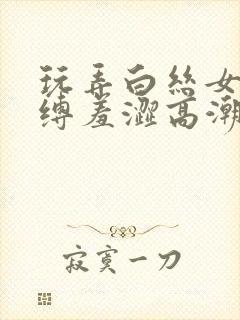 玩弄白丝女
缚羞澀高潮
寂寞一刀